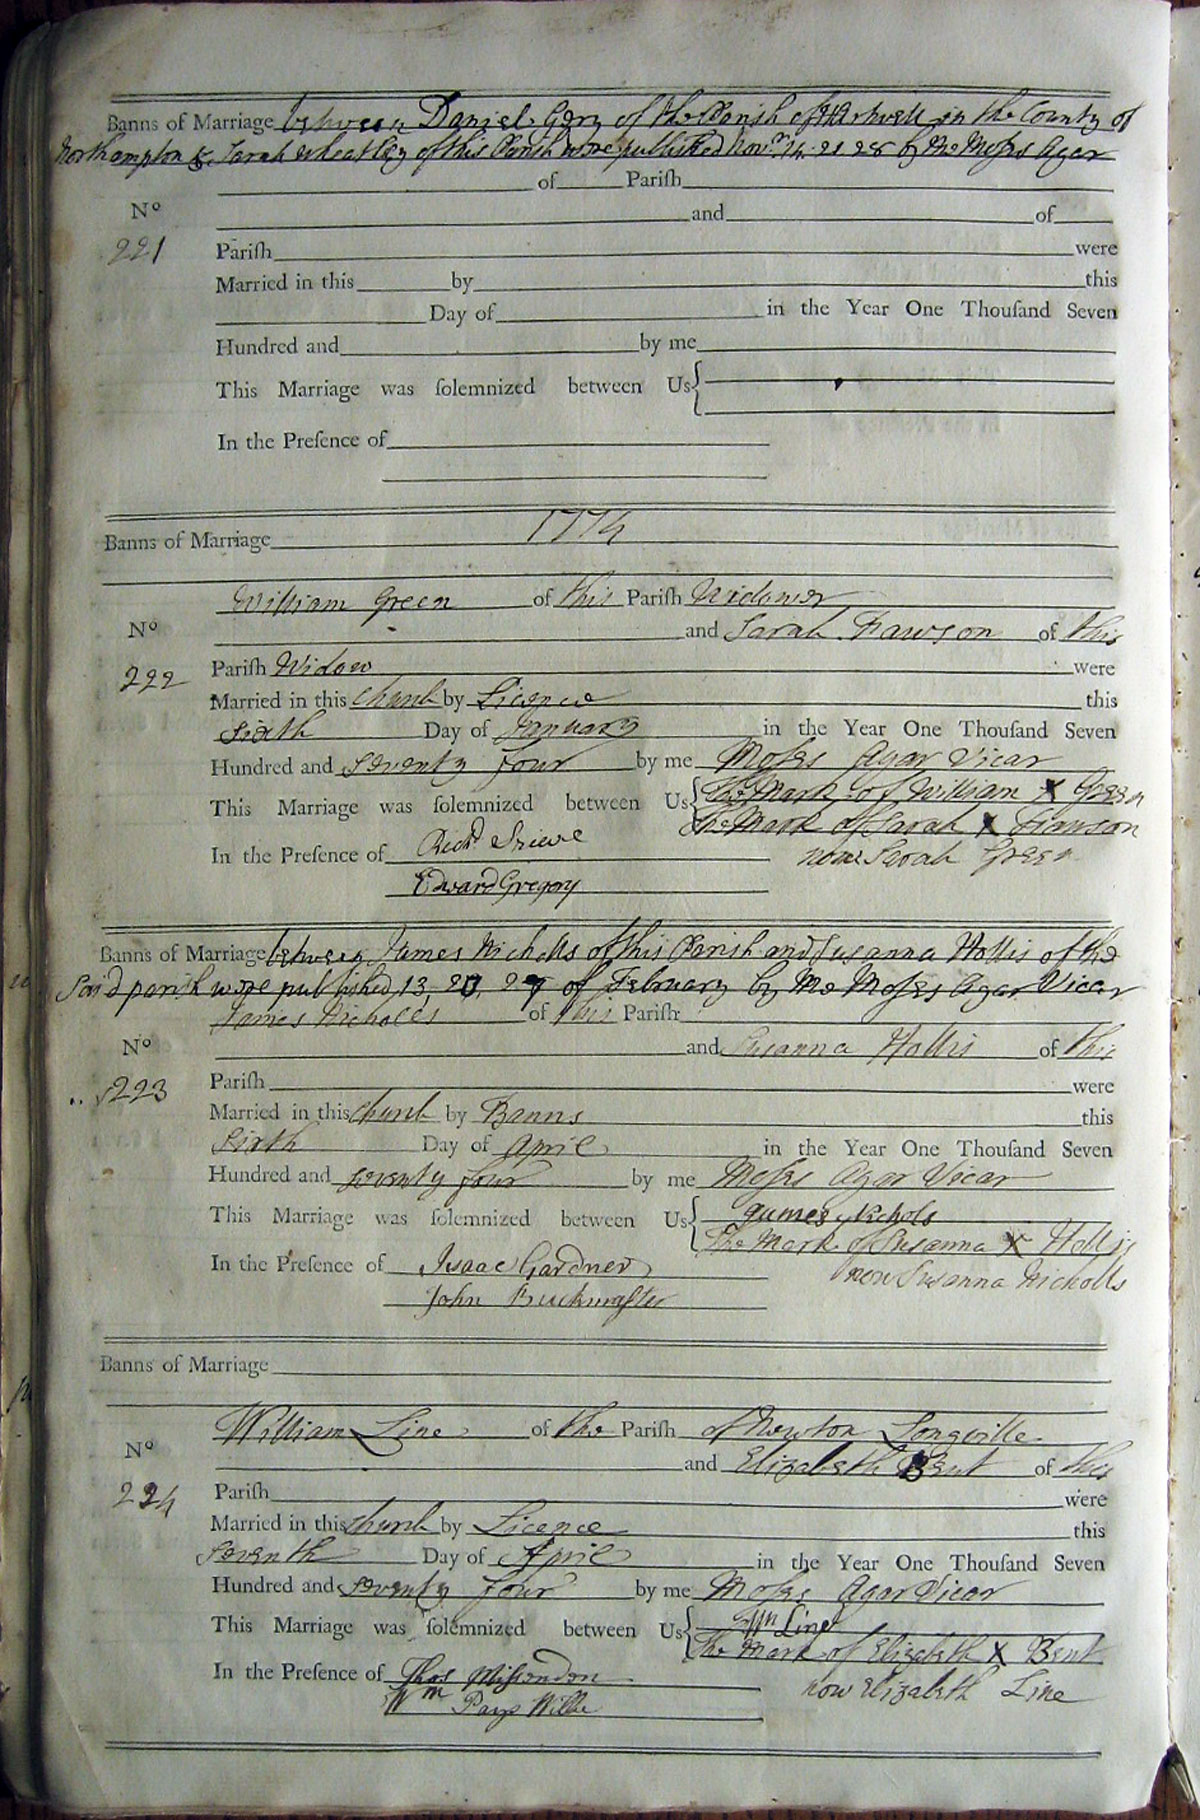 Banns of Marriage between Daniel Gery of the Parish of Hartwell in the County of
Northampton & Sarah Wheatley of this Parish were published Novr. 14. 21 28 by Me Moses Agar
of Parish
No
and of
221
Pariſh were
Married in this by this
Day of in the Year One Thouſand Seven
Hundred and by me
This Marriage was ſolemnized between Us
In the Preſence of
1774
Banns of Marriage
William Green of this Pariſh Widower
No
and Sarah Fawson of this
222
Pariſh Widow were
Married in this Church by Licence this
Sixth Day of January in the Year One Thouſand Seven
Hundred and Seventy four by me Moſes Agar Vicar
This Marriage was ſolemnized between Us The Mark of William X Green
The Mark of Sarah X Fawson
In the Preſence of Richd now Sarah Green
Edward Gregory
Banns of Marriage between James Nicholls of this Parish and Susanna Hollis of the
Said parish were published 13, 20, 27 of February by Me Moſes Agar Vicar
James Nicholls of this Pariſh
No
and Susanna Hollis of this
223
Pariſh were
Married in this Church by Banns this
Sixth Day of April in the Year One Thouſand Seven
Hundred and Seventy four by me Moſes Agar Vicar
This Marriage was ſolemnized between Us James Nichols
The Mark of Susanna X Hollis
In the Preſence of Isaac Gardner now Susanna Nicholls
John Buckmaſter
Banns of Marriage
William Line of the Pariſh of Newton Longville
No
and Elizabeth Bent of this
224
Pariſh were
Married in this Church by Licence this
Seventh Day of April in the Year One Thouſand Seven
Hundred and Seventy four by me Moſes Agar Vicar
This Marriage was ſolemnized between Us Wm Line
The Mark of Elizabeth X Bent
In the Preſence of Thos Miſsendon now Elizabeth Line
Wm Pays Willie